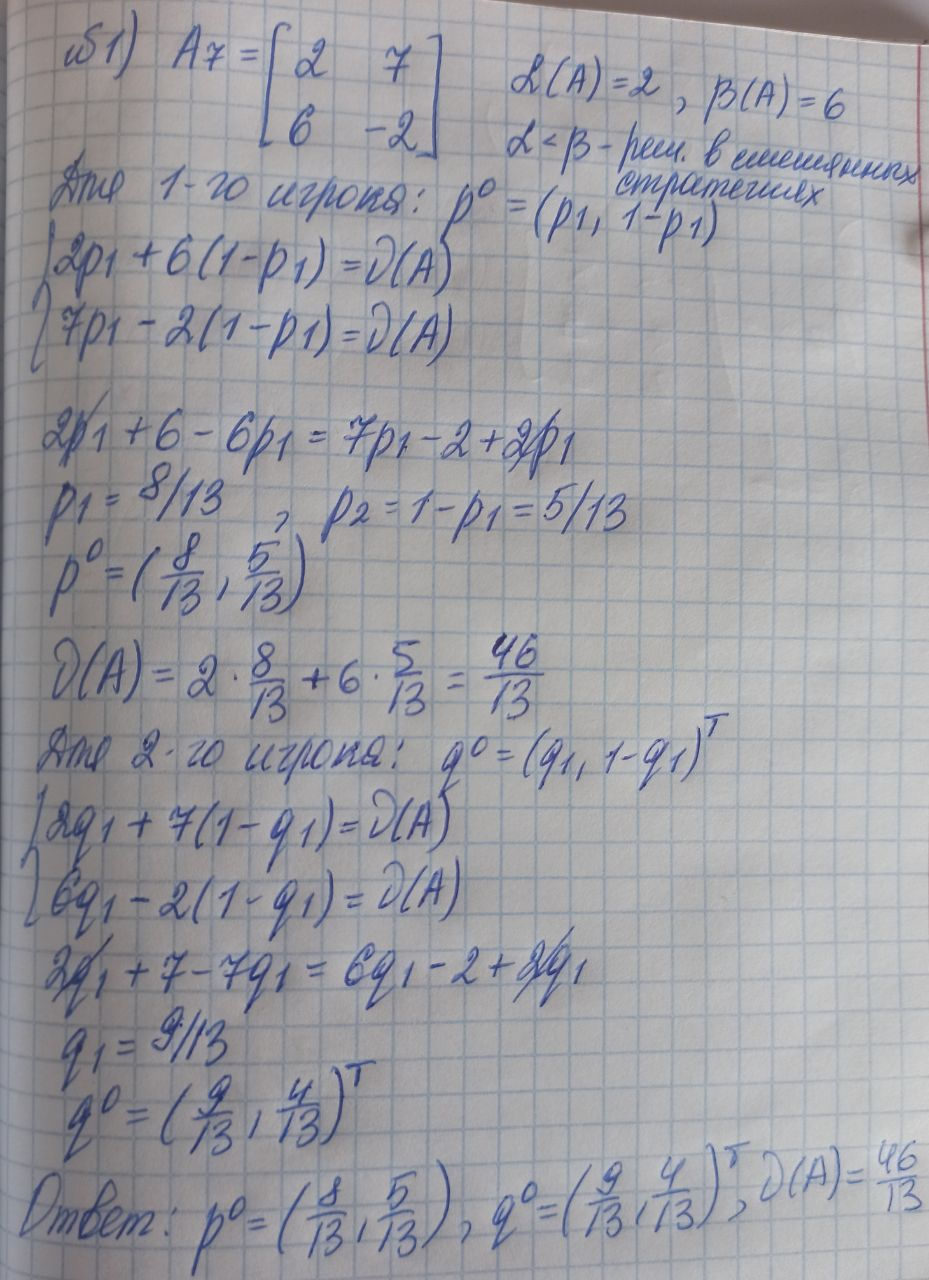 №1) A7 = [ 2 7
6 -2 ] α(A) = 2, β(A) = 6
α < β - реш. в смешанных стратегиях
Для 1-го игрока: p⁰ = (p1, 1-p1)
{ 2p1 + 6(1-p1) = ϑ(A)
7p1 - 2(1-p1) = ϑ(A)
2p1 + 6 - 6p1 = 7p1 - 2 + 2p1
p1 = 8/13 , p2 = 1-p1 = 5/13
p⁰ = (8/13, 5/13)
ϑ(A) = 2 · 8/13 + 6 · 5/13 = 46/13
Для 2-го игрока: q⁰ = (q1, 1-q1)ᵀ
{ 2q1 + 7(1-q1) = ϑ(A)
6q1 - 2(1-q1) = ϑ(A)
2q1 + 7 - 7q1 = 6q1 - 2 + 2q1
q1 = 9/13
q⁰ = (9/13, 4/13)ᵀ
Ответ: p⁰ = (8/13, 5/13), q⁰ = (9/13, 4/13)ᵀ, ϑ(A) = 46/13